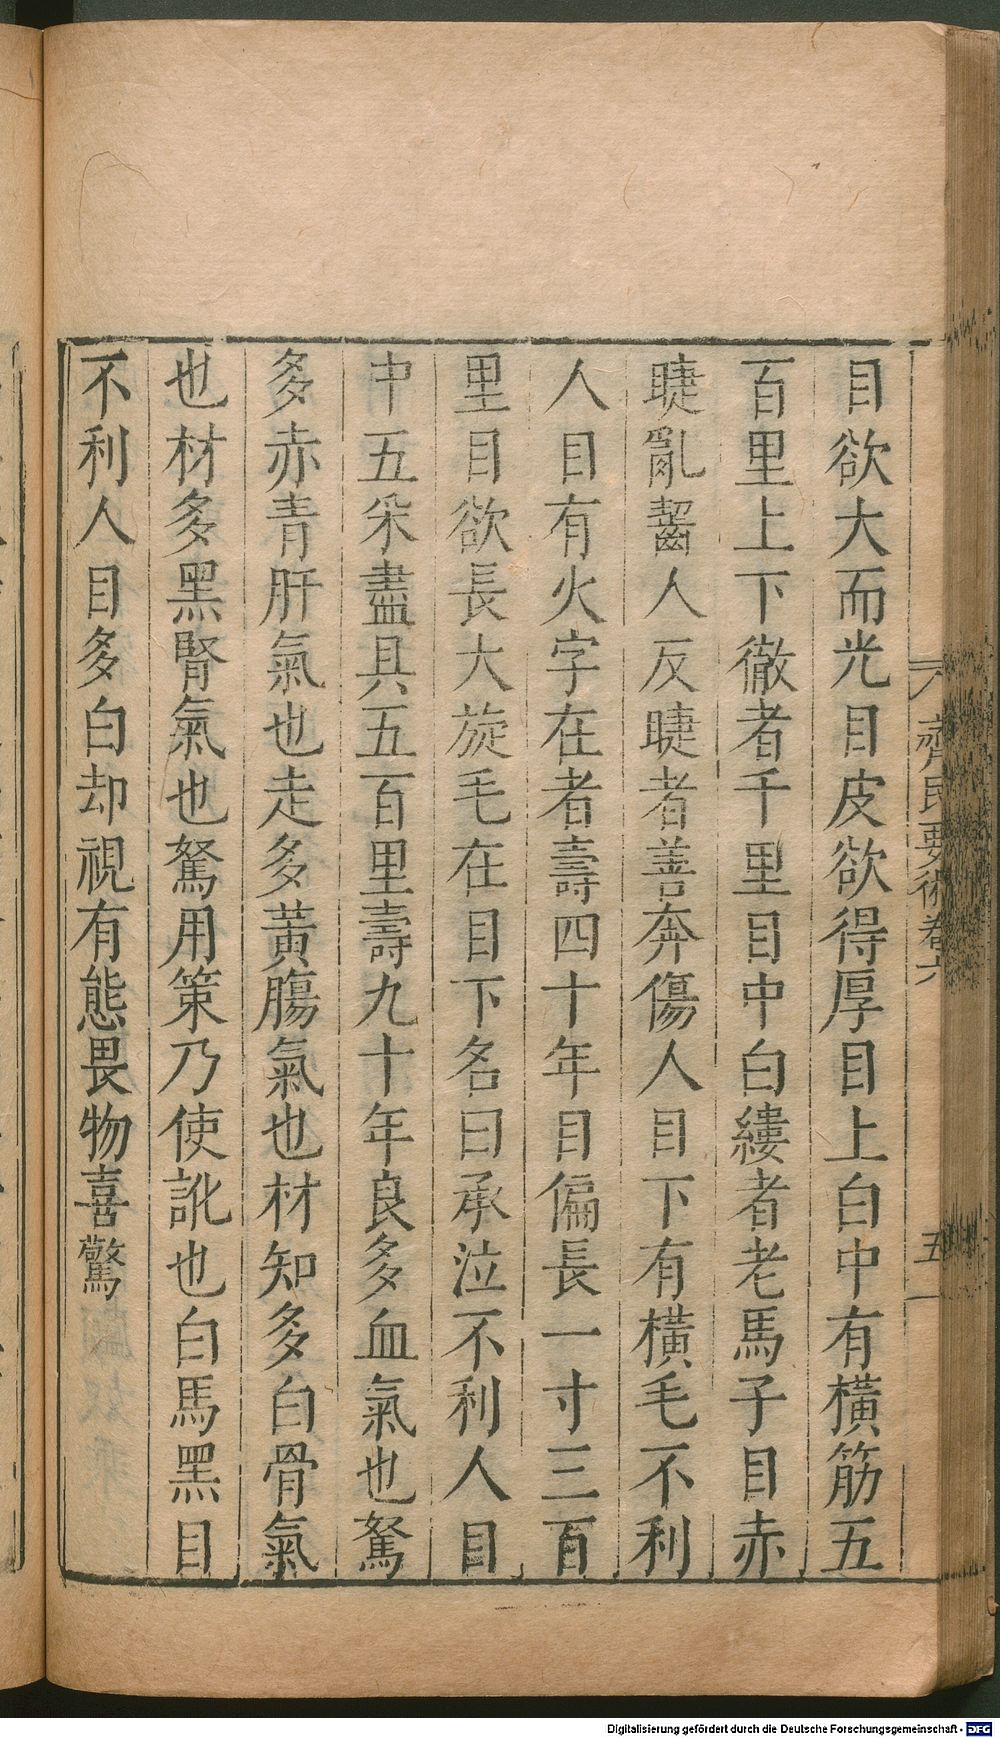 目欲大而光目皮欲得厚目上白中有橫筋五
百里上下徹者千里目中白縷者老馬子目赤
睫亂齧人反睫者善奔傷人目下有橫毛不利
人目有火字在者壽四十年目偏長一寸三百
里目欲長大旋毛在目下名曰承泣不利人目
中五采盡具五百里壽九十年良多血氣也駑
多赤青肝氣也走多黃腸氣也材知多白骨氣
也材多黑腎氣也駑用策乃使訛也白馬黑目
不利人目多白却視有態畏物喜驚
齊民要術卷六
五
Digitalisierung gefördert durch die Deutsche Forschungsgemeinschaft - DFG